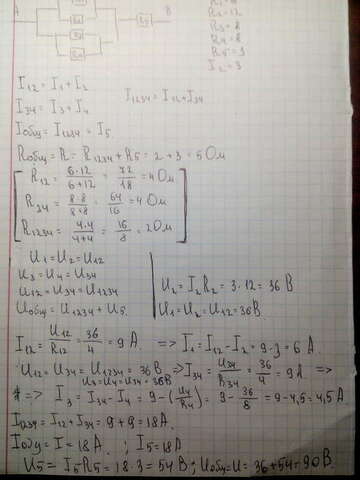 A
B
R₂=12
R₃=8
R₄=8
R₅=3
I₂=3
I₁₂=I₁+I₂
I₃₄=I₃+I₄
I₁₂₃₄=I₁₂+I₃₄
Iобщ=I₁₂₃₄=I₅
Rобщ=R=R₁₂₃₄+R₅=2+3=5 Ом
R₁₂=6·12/6+12=72/18=4 Ом
R₃₄=8·8/8+8=64/16=4 Ом
R₁₂₃₄=4·4/4+4=16/8=2 Ом
U₁=U₂=U₁₂
U₃=U₄=U₃₄
U₁₂=U₃₄=U₁₂₃₄
Uобщ=U₁₂₃₄+U₅
U₂=I₂R₂=3·12=36 В
U₁=U₂=U₁₂=36 В.
I₁₂=U₁₂/R₁₂=36/4=9 А. => I₁=I₁₂-I₂=9-3=6 А.
U₁₂=U₃₄=U₁₂₃₄=36 В => I₃₄=U₃₄/R₃₄=36/4=9 А =>
U₃=U₄=U₃₄=36 В
=> I₃=I₃₄-I₄=9-(U₄/R₄)=9-36/8=9-4,5=4,5 А
I₁₂₃₄=I₁₂+I₃₄=9+9=18 А.
Iобщ=I=18 А. ; I₅=18 А
U₅=I₅R₅=18·3=54 В; Uобщ=U=36+54=90 В.